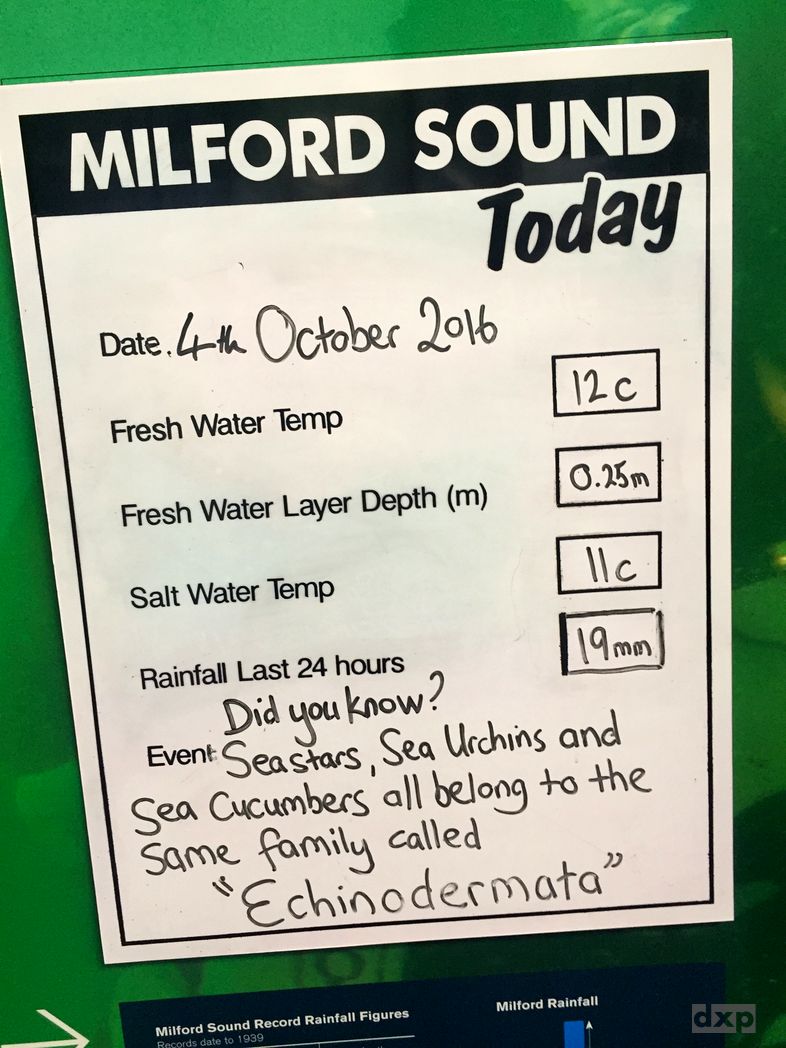 MILFORD SOUND
Today
Date. 4th October 2016
Fresh Water Temp 12c
Fresh Water Layer Depth (m) 0.25m
Salt Water Temp 11c
Rainfall Last 24 hours 19mm
Did you know?
Event Seastars, Sea Urchins and
Sea Cucumbers all belong to the
Same family called
"Echinodermata"
Milford Sound Record Rainfall Figures
Records date to 1939
Milford Rainfall
dxp